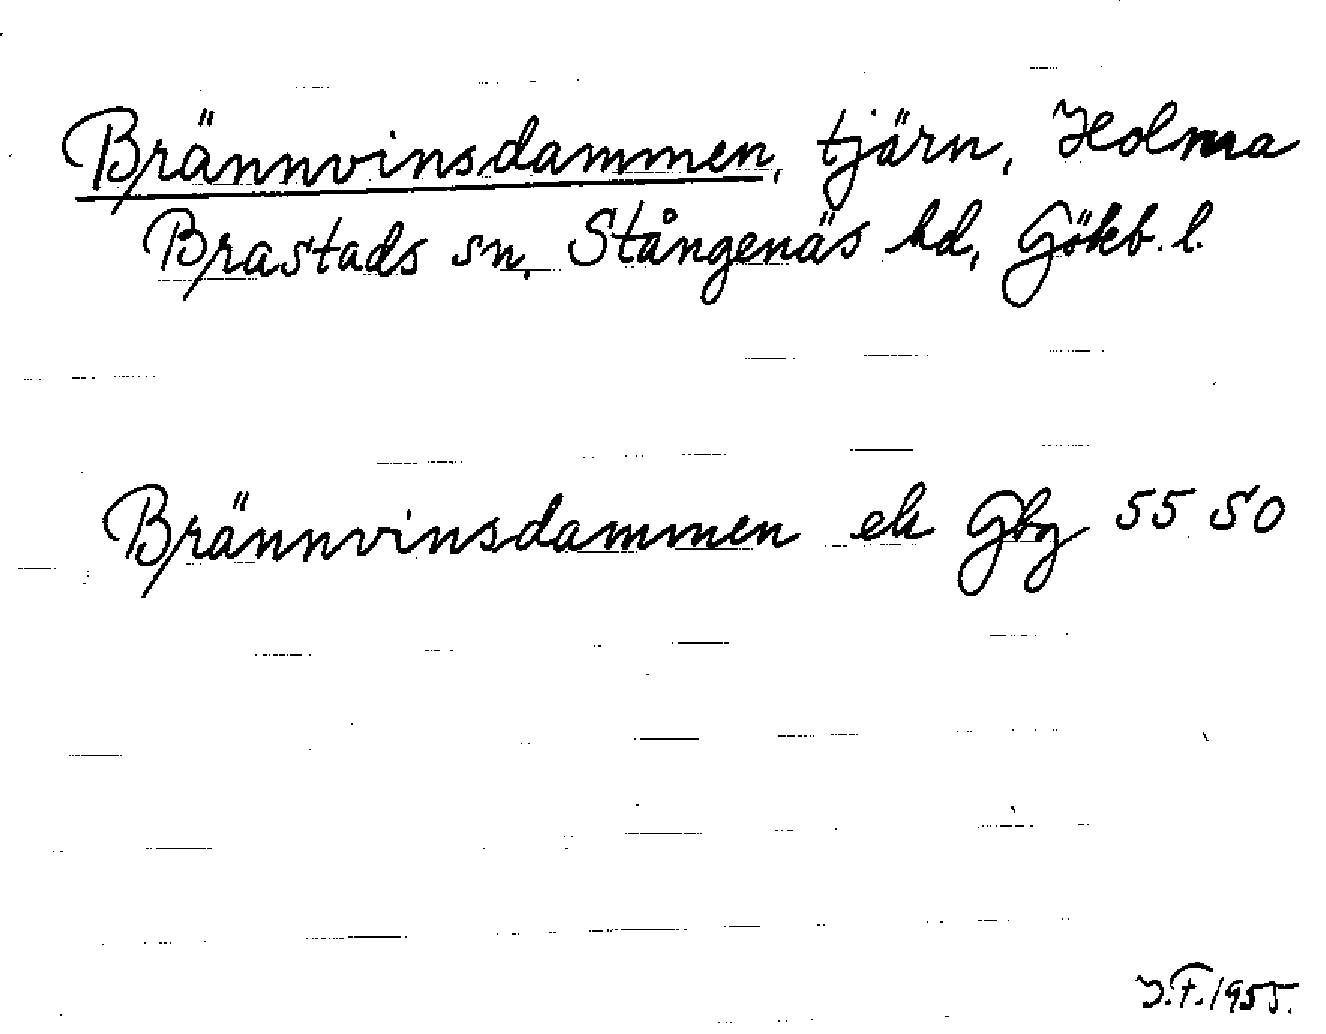 Brännvinsdammen, tjärn, Holma
Brastads sn, Stångenäs hd, Gökb. l.
Brännvinsdammen ek Gbg 55 50
J.F. 1955.